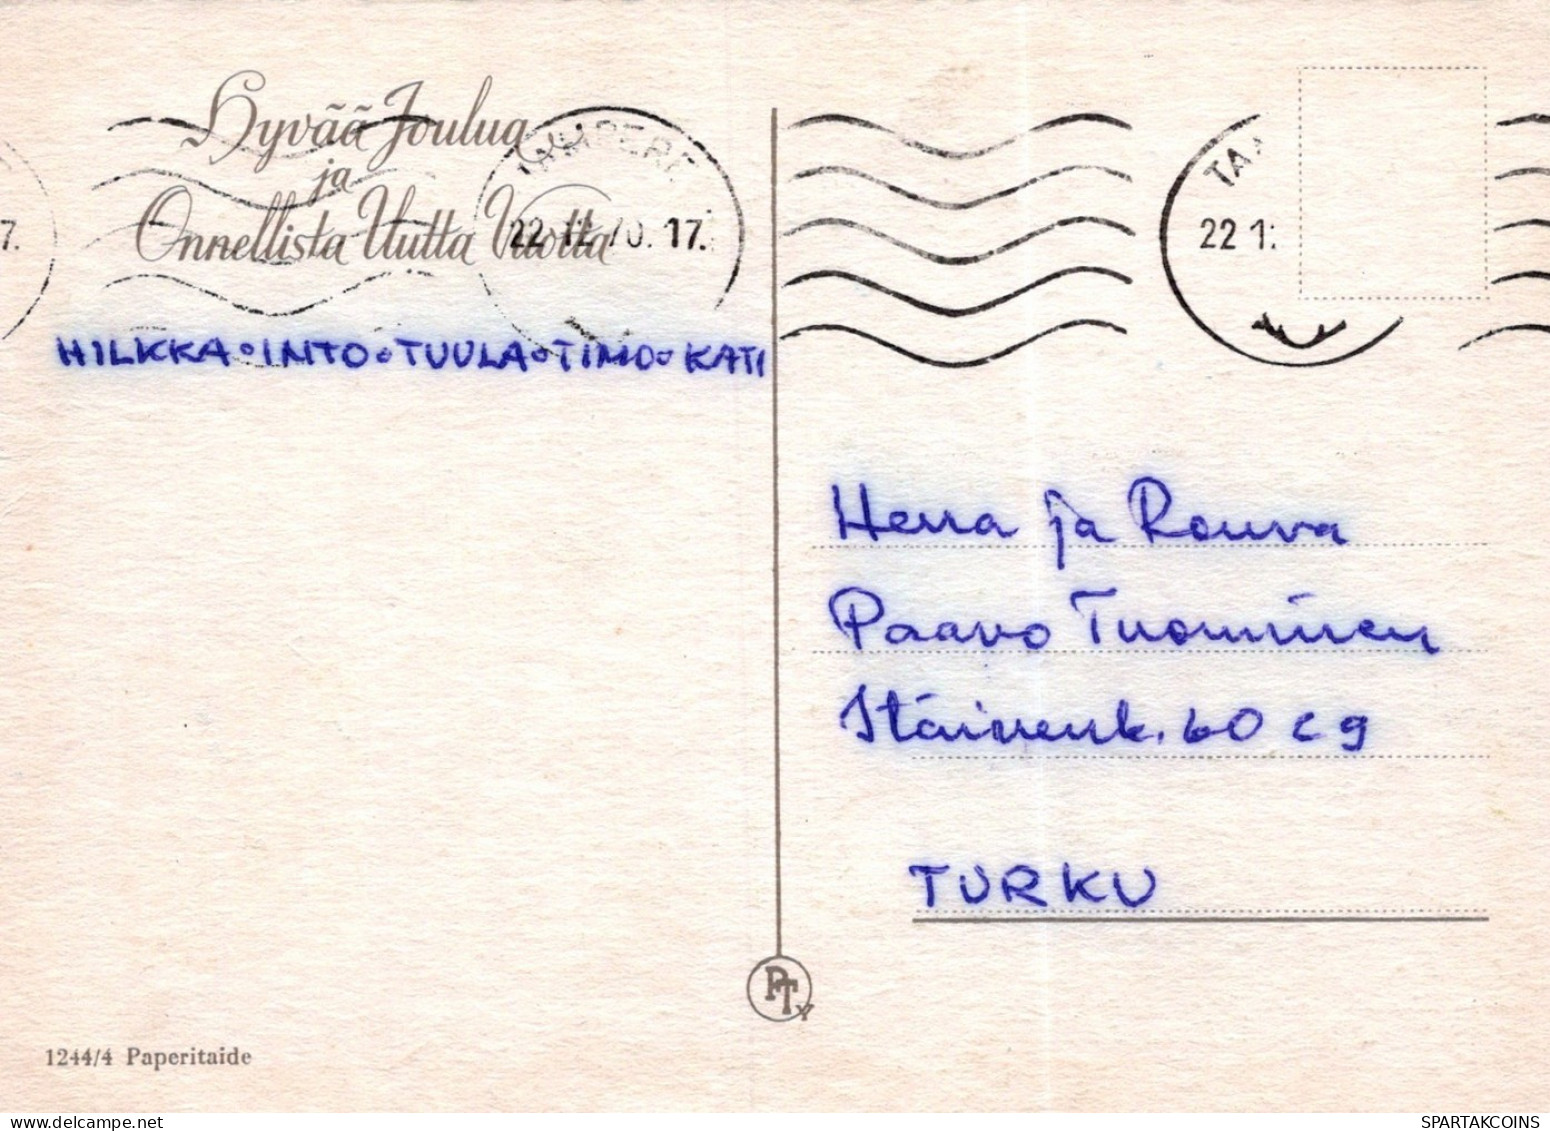 Hyvää Joulua
ja
Onnellista Uutta Vuotta
TAMPERE
22.12.70.17.
7.
TA
22 1
HILKKA•INTO•TUULA•TIMO•KATI
Herra ja Rouva
Paavo Tuominen
Itäinenk. 60 C 9
TURKU
PTy
1244/4 Paperitaide
delcampe.net
SPARTAKCOINS